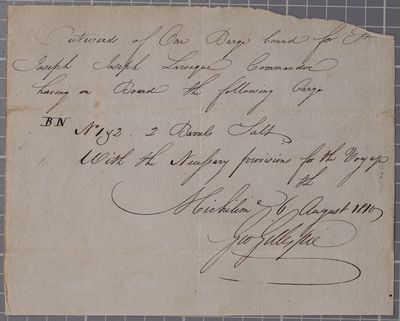 outwards of One Barge bound for St
Joseph Joseph Larocque Commander
having on Board the following Cargo
BN No 1 & 2 . 2 Barrels Salt
With the Necessary provisions for the Voyage
Michilim 6th August 1810
Geo Gillespie